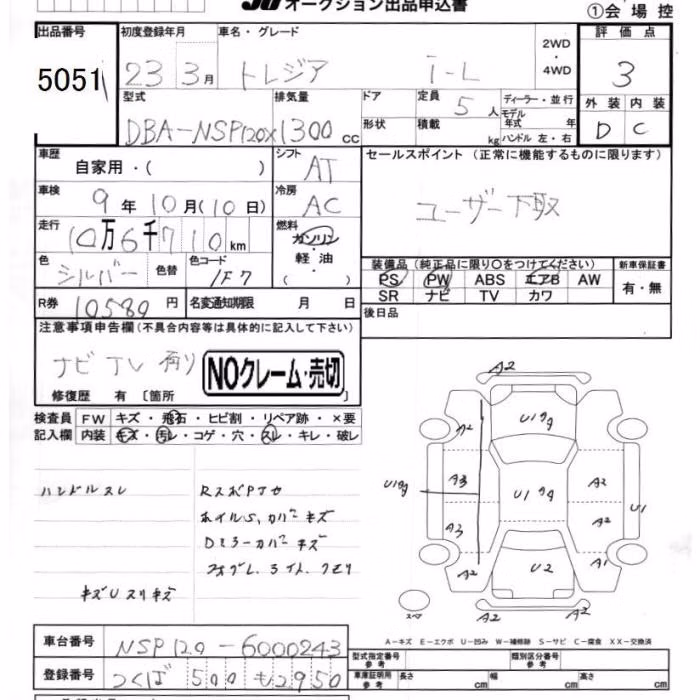 オークション出品申込書
①会場控
出品番号 初度登録年月 車名・グレード 2WD・4WD 評価点
5051 23 3月 トレジア i-L 3
型式 排気量 ドア 定員 5人 ディーラー・並行 外装 内装
DBA-NSP120X 1300cc 形状 積載 kg モデル年式 年 ハンドル 左・右 D C
車歴 自家用・( ) シフト AT セールスポイント (正常に機能するものに限ります)
車検 9年10月(10日) 冷房 AC ユーザー下取
走行 10万6千710km 燃料 ガソリン
色 シルバー 色替 色コード 1F7 軽油・( ) 装備品(純正品に限り○をつけてください) 新車保証書
PS PW ABS エアB AW 有・無
SR ナビ TV カワ
R券 10580円 名変通知期限 月 日 後日品
注意事項申告欄(不具合内容等は具体的に記入して下さい)
ナビ TV 有り NOクレーム・売切
修復歴 有 〔箇所 〕
検査員 FW キズ・飛石・ヒビ割・リペア跡・×要
記入欄 内装 キズ・汚レ・コゲ・穴・スレ・キレ・破レ
ハンドルスレ
ホイルS、カバーキズ
Dミラーカバーキズ
キズUスリキズ
A2
A2 U1
A3 U1 A2 U1
A3 A2
A2 U2 A1
スペア A2 A2
A-キズ E-エクボ U-凹み W-補修跡 S-サビ C-腐食 XX-交換済
車台番号 NSP120-6000243 型式指定番号 参考 類別区分番号 参考
登録番号 つくば 500 も2950 車庫証明用 参考 長さ cm 幅 cm 高さ cm